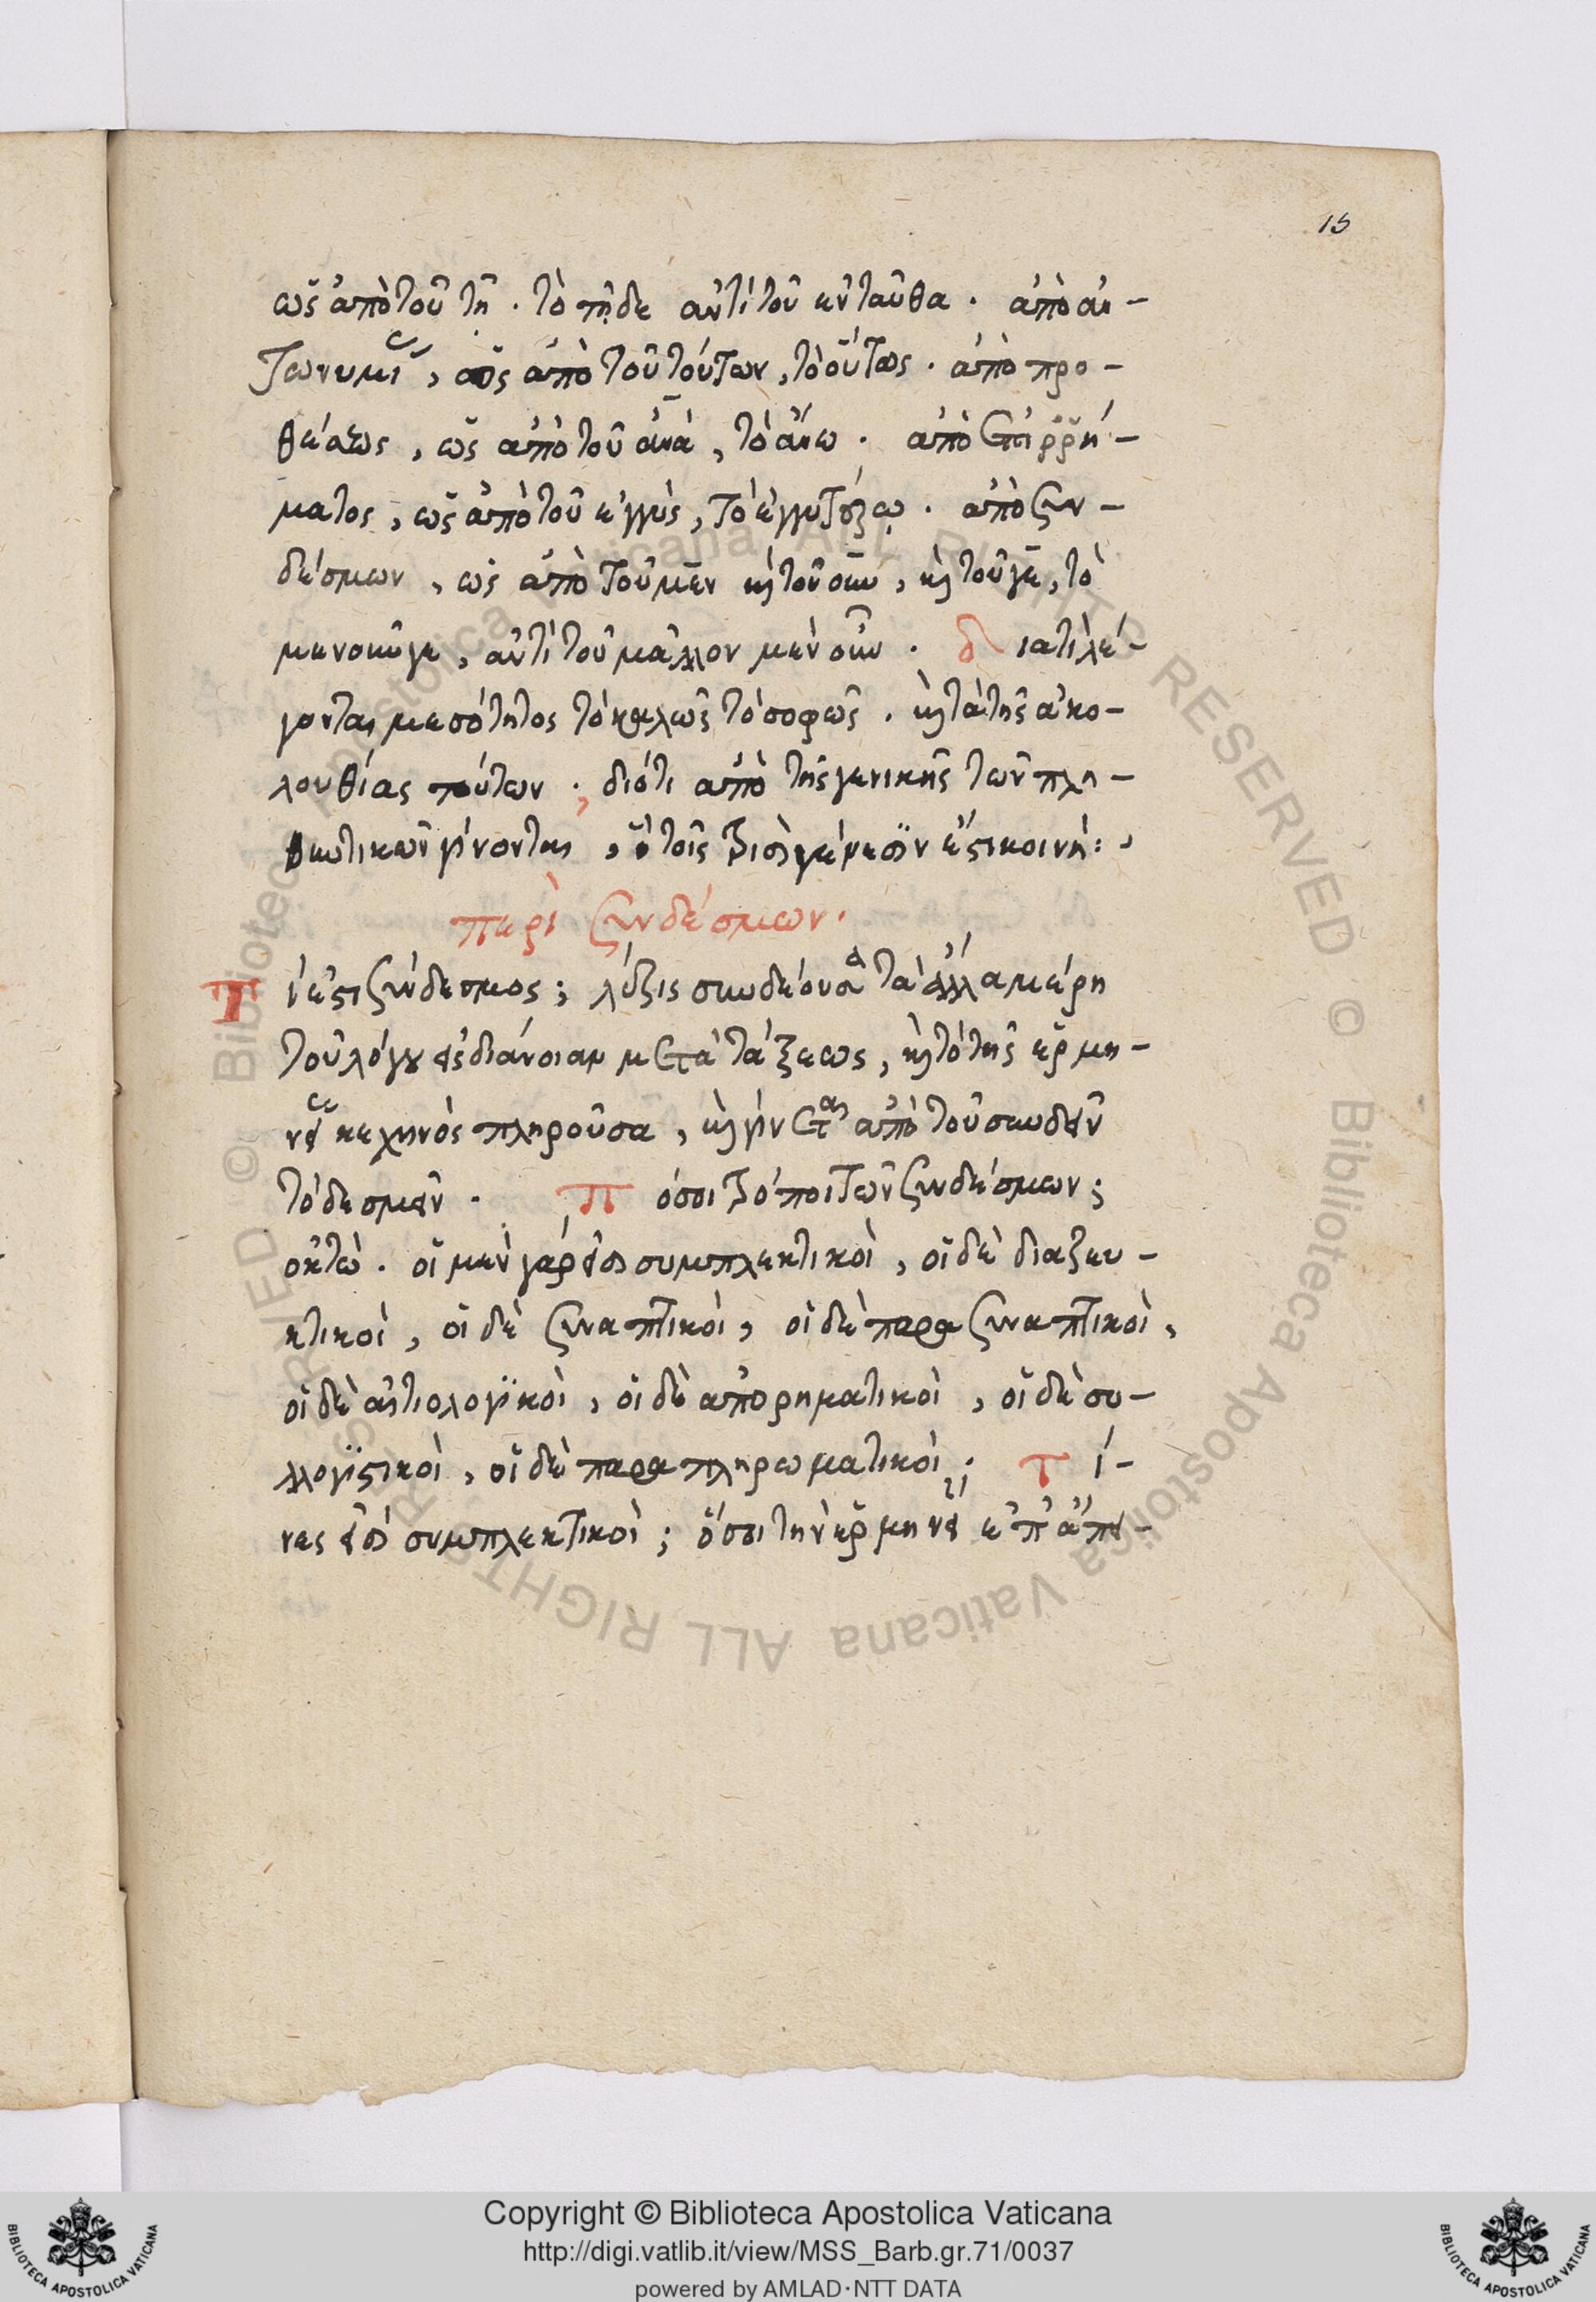 15
ὡς ἀπὸ τοῦ τῆ · τὸ τῆδε ἀντὶ τοῦ ἐνταῦθα · ἀπὸ ἀν-
τωνυμιῶν, ὡς ἀπὸ τοῦ τούτων, τὸ οὕτως · ἀπὸ προ-
θέσεως, ὡς ἀπὸ τοῦ ἀνὰ, τὸ ἄνω · ἀπὸ ἐπιρρή-
ματος, ὡς ἀπὸ τοῦ ἐγγὺς, τὸ ἐγγυτέρω · ἀπὸ συν-
δέσμων, ὡς ἀπὸ τοῦ μὲν καὶ τοῦ οὖν, καὶ τοῦ γε, τὸ
μενοῦνγε, ἀντὶ τοῦ μᾶλλον μὲν οὖν · διατὶ λέ-
γονται μεσότητος τὸ καλῶς τὸ σοφῶς · καὶ τὰ τῆς ἀκο-
λουθίας τούτων ; διότι ἀπὸ τῆς γενικῆς τῶν πλη-
θυντικῶν γίνονται, ἣ τοῖς τρισὶ γένεσιν ἐστι κοινή :
περὶ συνδέσμων ·
Τί ἐστι σύνδεσμος ; λέξις συνδέουσα τὰ ἄλλα μέρη
τοῦ λόγου εἰς διάνοιαν μετὰ τάξεως, καὶ τὸ τῆς ἑρμη-
νείας κεχηνὸς πληροῦσα, καὶ γίνεται ἀπὸ τοῦ συνδεῖν
τὸ δεσμεῖν · Πόσοι τρόποι τῶν συνδέσμων ;
ὀκτώ · οἱ μὲν γάρ εἰσι συμπλεκτικοὶ, οἱ δὲ διαζευ-
κτικοὶ, οἱ δὲ συναπτικοὶ, οἱ δὲ παρασυναπτικοὶ,
οἱ δὲ αἰτιολογικοὶ, οἱ δὲ ἀπορηματικοὶ, οἱ δὲ συ-
λλογιστικοὶ, οἱ δὲ παραπληρωματικοὶ ; τί-
νες εἰσὶ συμπλεκτικοὶ ; ὅσοι τὴν ἑρμηνείαν ἐπ' ἄπει-
Copyright © Biblioteca Apostolica Vaticana
http://digi.vatlib.it/view/MSS_Barb.gr.71/0037
powered by AMLAD·NTT DATA
© Biblioteca Apostolica Vaticana ALL RIGHTS RESERVED © Biblioteca Apostolica Vaticana ALL RIGHTS RESERVED
BIBLIOTECA APOSTOLICA VATICANA
BIBLIOTECA APOSTOLICA VATICANA